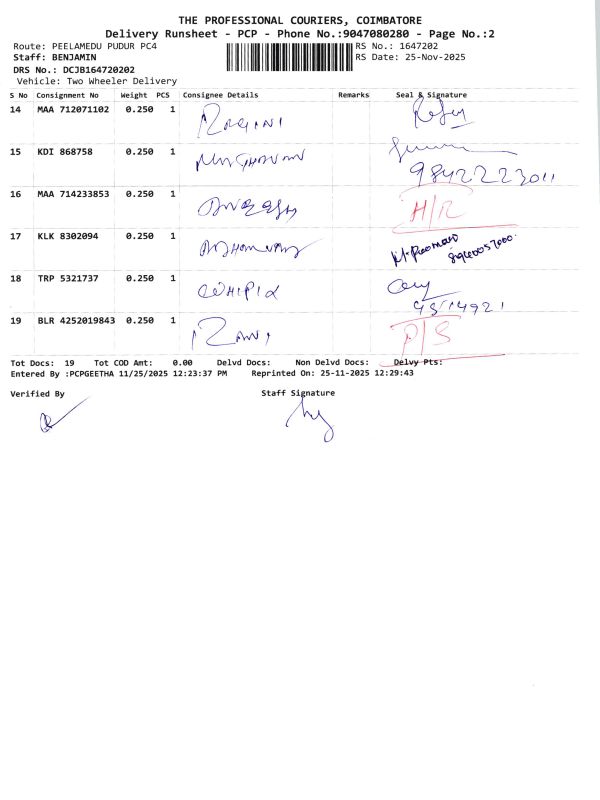 THE PROFESSIONAL COURIERS, COIMBATORE
Delivery Runsheet - PCP - Phone No.:9047080280 - Page No.:2
Route: PEELAMEDU PUDUR PC4 RS No.: 1647202
Staff: BENJAMIN RS Date: 25-Nov-2025
DRS No.: DCJB164720202
Vehicle: Two Wheeler Delivery
S No Consignment No Weight PCS Consignee Details Remarks Seal & Signature
14 MAA 712071102 0.250 1 RAGINI
15 KDI 868758 0.250 1
9842223011
16 MAA 714233853 0.250 1 H/R
17 KLK 8302094 0.250 1
18 TRP 5321737 0.250 1
19 BLR 4252019843 0.250 1 RANI
Tot Docs: 19 Tot COD Amt: 0.00 Delvd Docs: Non Delvd Docs: Delvy Pts:
Entered By :PCPGEETHA 11/25/2025 12:23:37 PM Reprinted On: 25-11-2025 12:29:43
Verified By Staff Signature